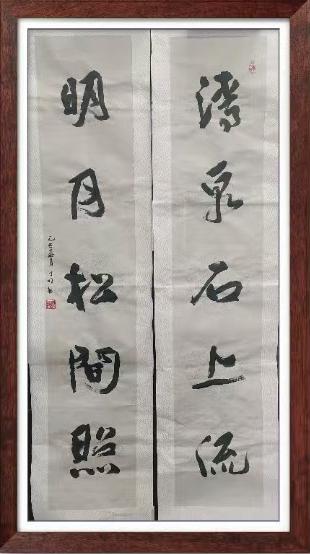 清泉石上流
明月松間照